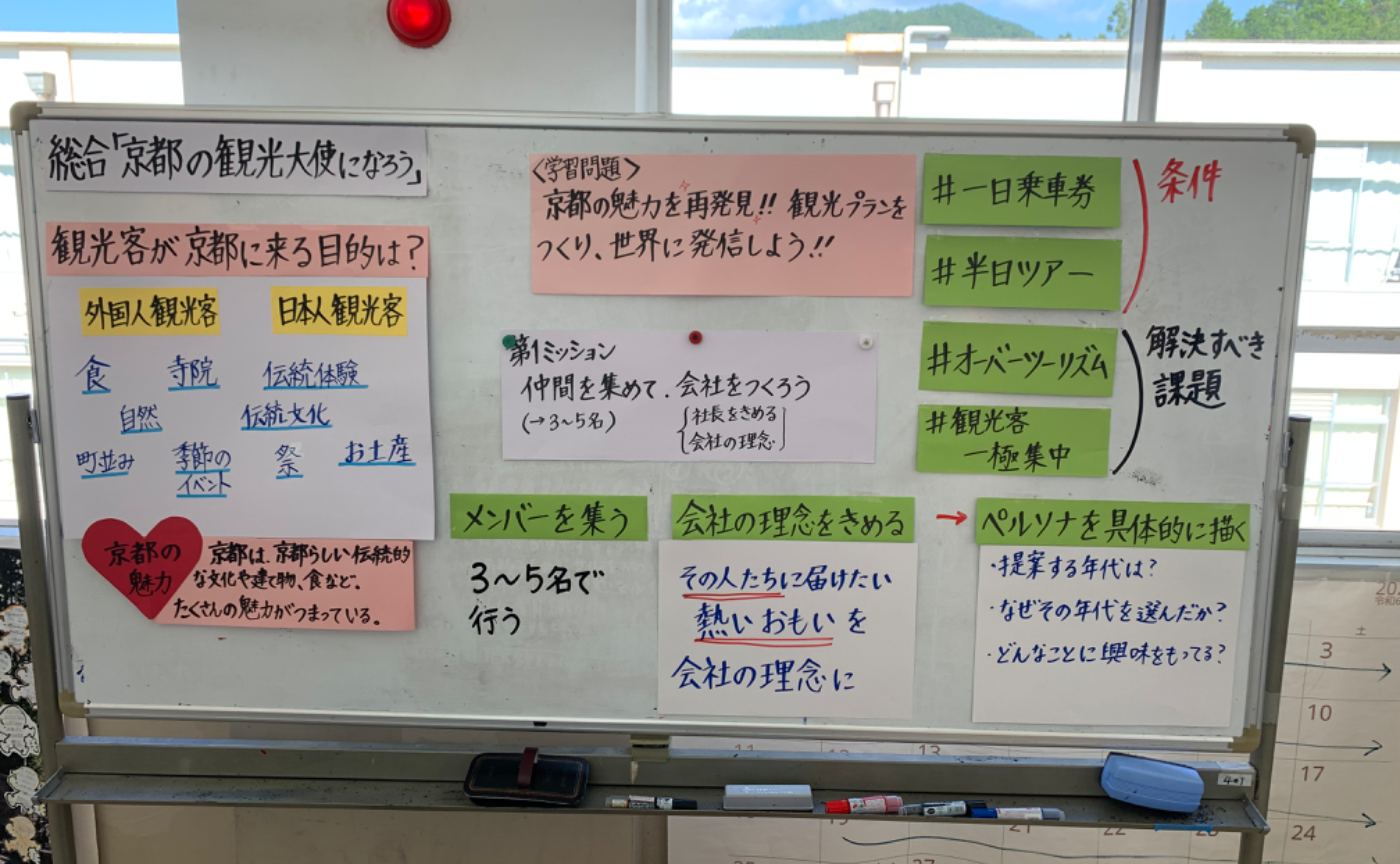 総合「京都の観光大使になろう」
観光客が京都に来る目的は?
外国人観光客
日本人観光客
食
寺院
伝統体験
自然
伝統文化
町並み
季節の
イベント
祭
お土産
京都の
魅力
京都は、京都らしい伝統的
な文化や建て物、食など、
たくさんの魅力がつまっている。
<学習問題>
京都の魅力を再発見!! 観光プランを
つくり、世界に発信しよう!!
第1ミッション
仲間を集めて、会社をつくろう
(→3~5名)
社長をきめる
会社の理念
#一日乗車券
#半日ツアー
条件
#オーバーツーリズム
#観光客
一極集中
解決すべき
課題
メンバーを集う
3~5名で
行う
会社の理念をきめる
その人たちに届けたい
熱いおもいを
会社の理念に
→ ペルソナを具体的に描く
・提案する年代は?
・なぜその年代を選んだか?
・どんなことに興味をもってる?
土
3
10
17
24
11
12
13
21
22
23